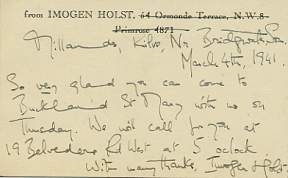 from IMOGEN HOLST, 64 Ormonde Terrace, N.W.8.
Primrose 4871
Millands, Kilve, Nr Bridgwater, Som.
March 4th, 1941.
So very glad you can come to
Buckland St Mary with us on
Thursday. We will call for you at
19 Belvedere Rd West at 5 oclock
With many thanks, Imogen Holst.